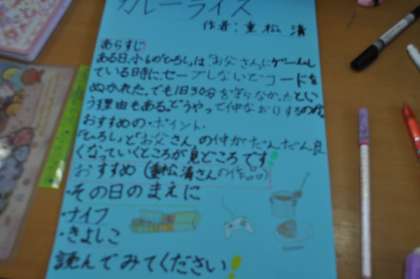 カレーライス
作者:重松 清
あらすじ
ある日、小6の「ひろし」は「お父さん」にゲームし
ている時に、セーブしないでコードを
ぬかれた。でも1日30分を守らなかったとい
う理由もある。どうやって仲なおりするのか。
おすすめの・ポイント
「ひろし」と「お父さん」の仲がだんだん良
くなっていくところが見どころです!
おすすめ(重松清さんの作品)
・その日のまえに
・ナイフ
・きよしこ
読んでみてください!